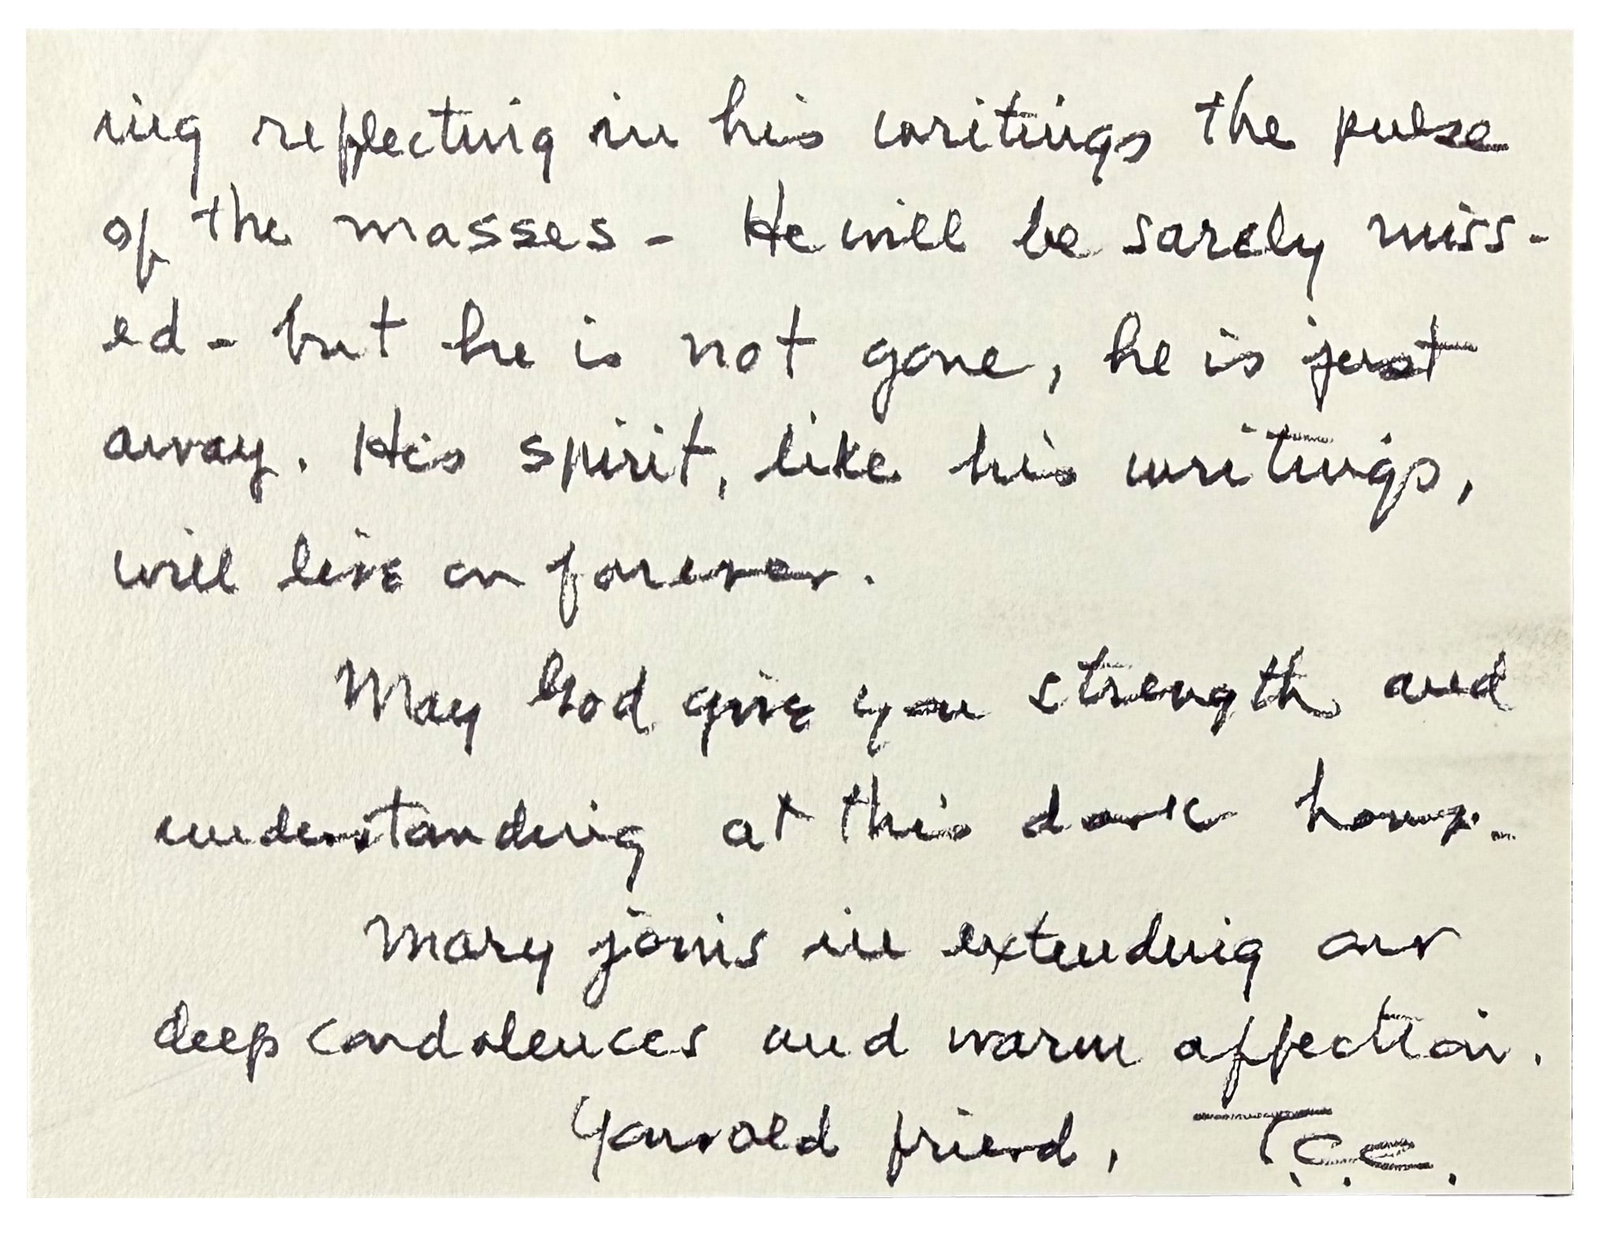 ing reflecting in his writings the pulse
of the masses - He will be sorely miss-
ed - but he is not gone, he is just
away. His spirit, like his writings,
will live on forever.
May God give you strength and
understanding at this dark hour.
Mary joins in extending our
deep condolences and warm affection.
Your old friend, T.C.E.